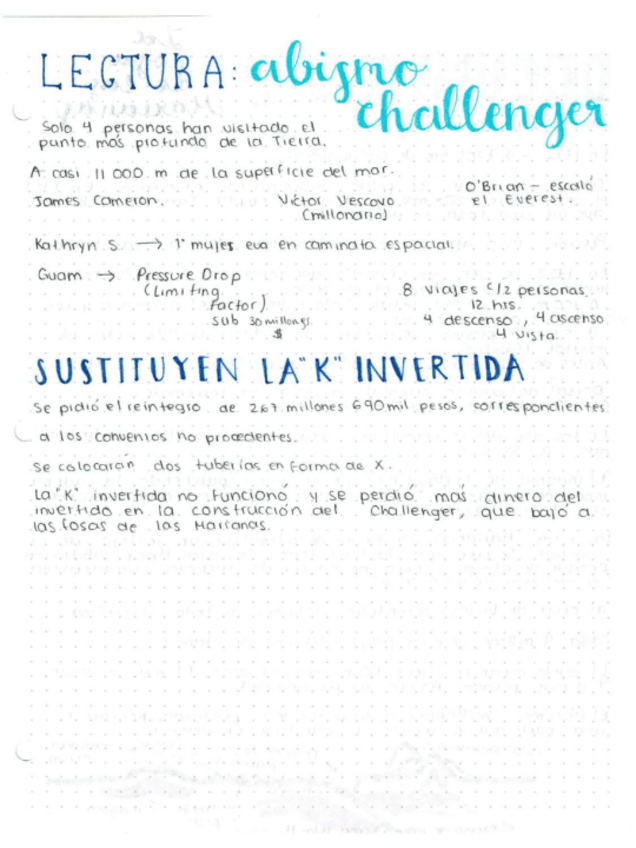 LECTURA: abismo
challenger
Solo 4 personas han visitado el
punto más profundo de la Tierra.
A casi 11 000 m de la superficie del mar.
James Cameron.
Víctor Vescovo
(millonario)
O'Brian – escaló
el Everest.
Kathryn S. → 1° mujer eua en caminata espacial.
Guam → Pressure Drop
(Limiting
Factor)
sub 30 millones
$
8 viajes c/2 personas
12 hrs.
4 descenso, 4 ascenso
4 vista
SUSTITUYEN LA "K" INVERTIDA
Se pidió el reintegro de 267 millones 690 mil pesos, correspondientes
a los convenios no procedentes.
Se colocarán dos tuberías en forma de X.
La "K" invertida no funcionó y se perdió más dinero del
invertido en la construcción del Challenger, que bajó a
las fosas de las Marianas.